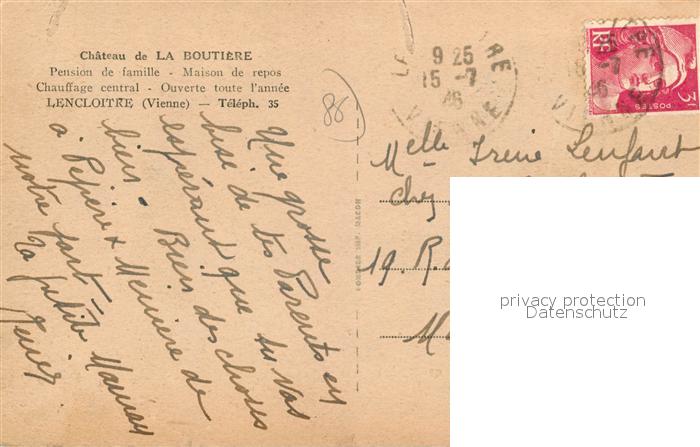 Château de LA BOUTIÈRE
Pension de famille - Maison de repos
Chauffage central - Ouverte toute l'année
LENCLOITRE (Vienne) — Téléph. 35
(86)
Une grosse
bise de tes Parents en
espérant que tu vas
bien. Bien des choses
à Pépère & Mémère de
notre part
Ta petite Maman
9 25
15 -7
46
VIENNE
RF
3F
POSTES
Melle Irène Lenfant
chez
19. R.
privacy protection
Datenschutz